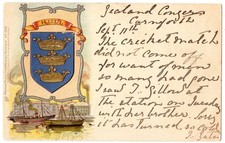 Zealand Congers
Carnforth
Sept 11th
The cricket match
did not come off
for want of men
so many had gone
I saw T. Gillow at
the station on Tuesday
with her brother. Sorry
it has turned so cold